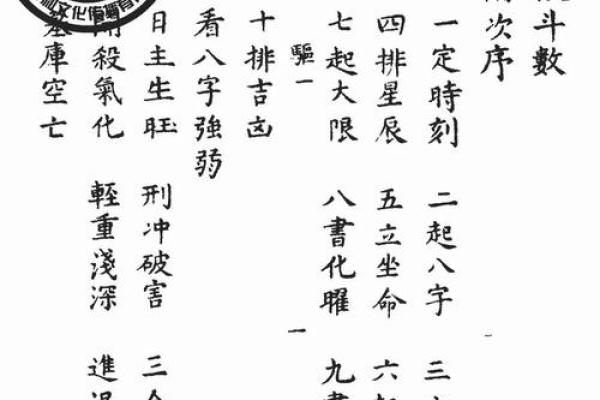 斗數
次序
一定時刻 二起八字 三
四排星辰 五立坐命 六
七起大限 八書化曜 九
驅一 一
十排吉凶
看八字強弱
日主生旺 刑冲破害 三
殺氣化 輕重淺深 進
庫空亡